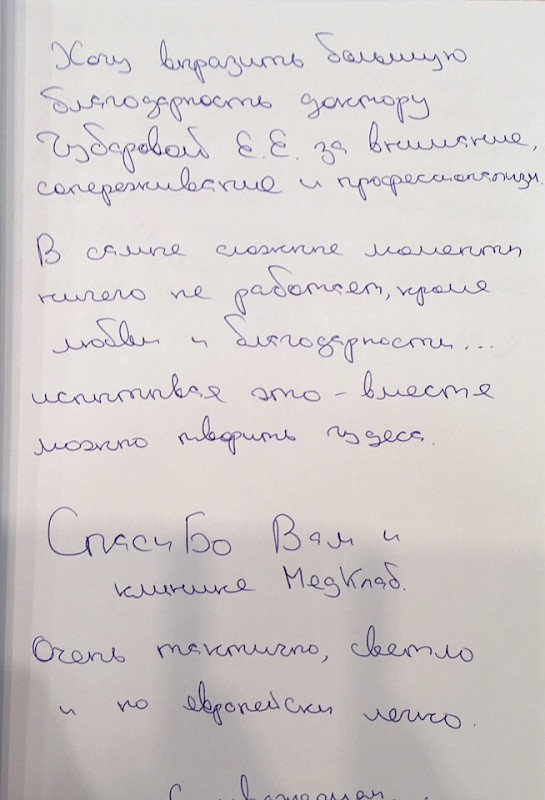 Хочу выразить большую
благодарность доктору
Чубаровой Е.Е. за внимание,
сопереживание и профессионализм.
В самые сложные моменты
ничего не работает, кроме
любви и благодарности...
испытывая это - вместе
можно творить чудеса.
Спасибо Вам и
клинике МедКлаб.
Очень тактично, светло
и по европейски легко.
С уважением,